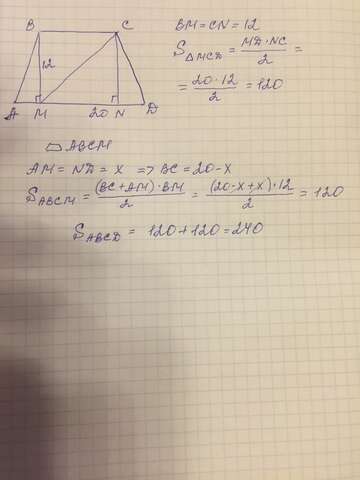 B C
12
A M 20 N D
BM = CN = 12
S△MCD = MD · NC / 2 =
= 20 · 12 / 2 = 120
▱ ABCM
AM = ND = x => BC = 20 - x
S ABCM = (BC + AM) · BM / 2 = (20 - x + x) · 12 / 2 = 120
S ABCD = 120 + 120 = 240